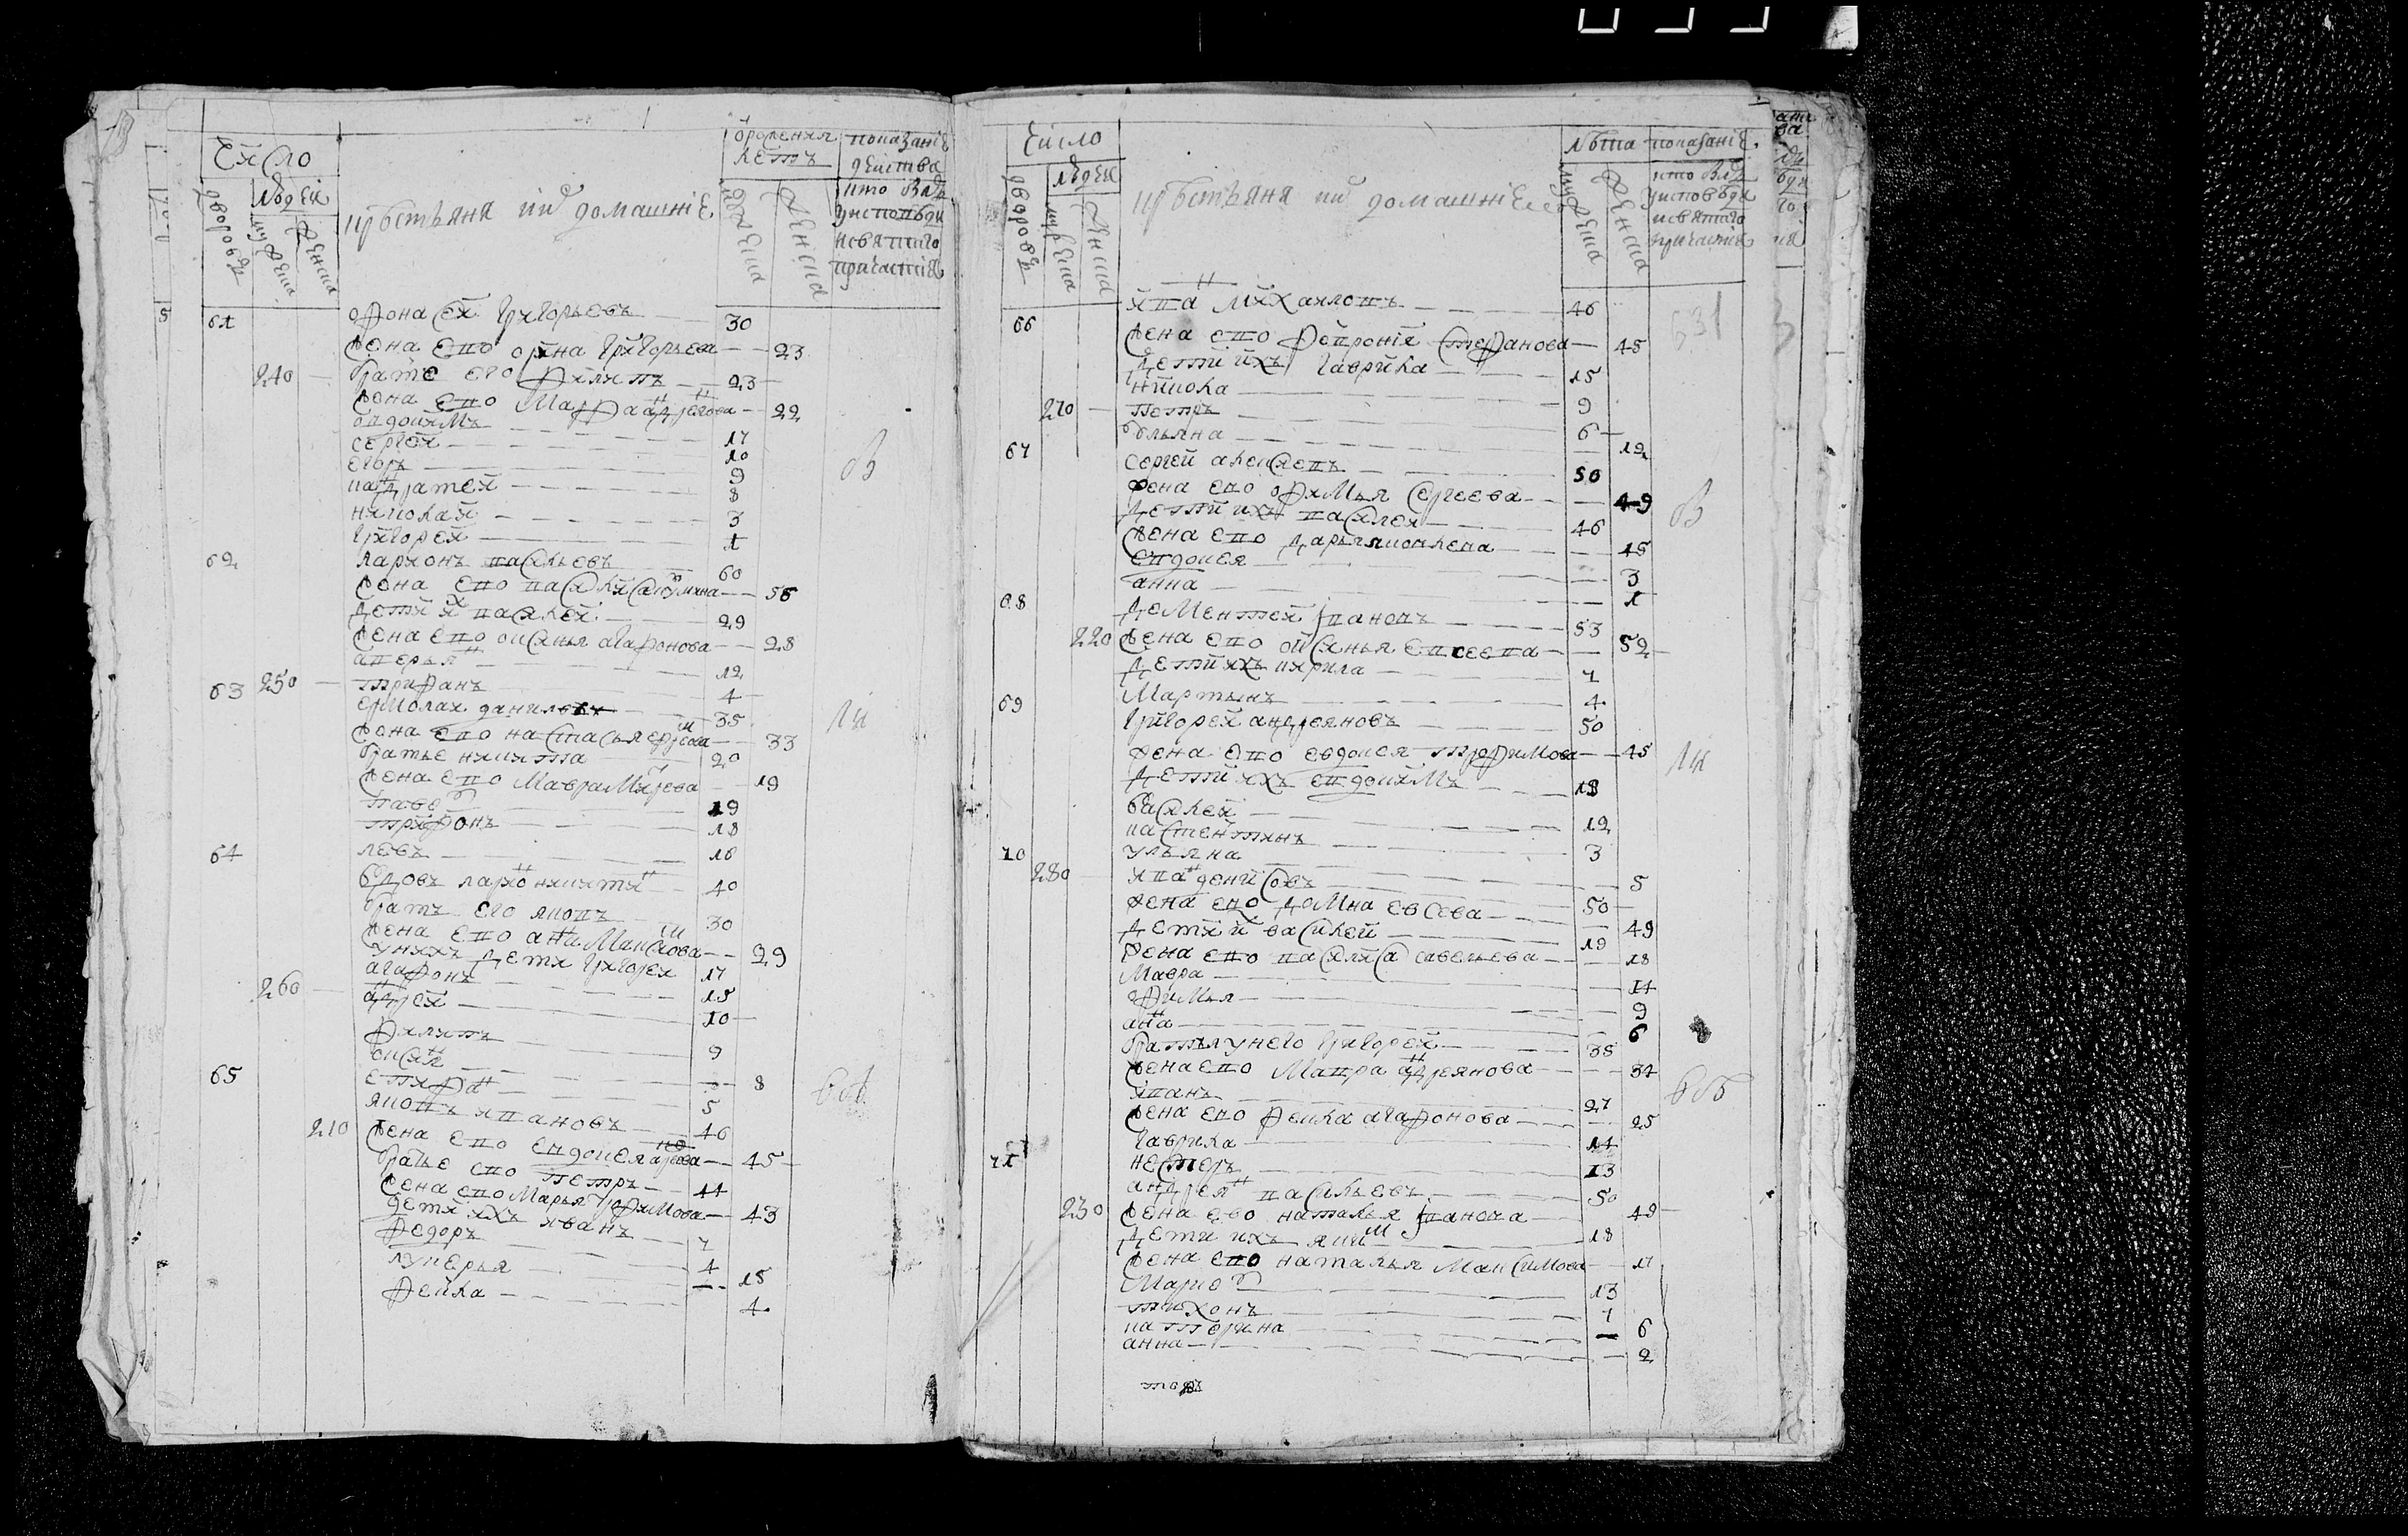 Число
дворовъ
людей
мужеска
женска
крестьяня и домашнїе
отрожения
летъ
мужеска
женска
показанїе
действа
кто былъ
у исповеди
и святаго
причастия
61
офонасей григорьевъ 30
жена ево орина григорьева 23
240
брате его филипъ 23
жена ево марфа адреева 22
овдокимъ 17
сергей 10
егоръ 9
кадратей 8
николай 3
григорей 1
62
ларионъ васильевъ 60
жена ево василиса 56
дети их василей 29
жена ево оксинья агафонова 28
аверьян 12
250
трифанъ 4
63
ермолай данилевъ 35
жена ево настасья 33
братье никита 20
жена ево мавра 19
павел 19
трифонъ 18
левъ 16
64
вдовъ ларион никитин 40
братъ его яковъ 30
жена ево анна максимова 29
у нихъ дети григорей 17
агафонъ 15
260
андрей 10
филипъ 9
оксиня 8
епифан 5
65
яковъ ивановъ 46
210
жена ево евдокея 45
братье ево петръ 44
жена ево марья трофимова 43
дети ихъ иванъ 7
федоръ 4
лукерья 15
фекла 4
Число
дворовъ
людей
мужеска
женска
крестьяня и домашнїе
лета
мужеска
женска
показанїе
кто былъ
у исповеди
и святаго
причастия
631
66
иван михаиловъ 46
жена ево февронїя стефанова 45
дети ихъ гаврила 15
никола 9
270
петръ 6
ульяна 12
67
сергей алексеевъ 50
жена ево офимья сергеева 49
дети ихъ василей 46
жена ево дарья яковлева 45
евдокея 3
анна 1
68
дементей ивановъ 53
220
жена ево оксинья евсеева 52
дети ихъ кирила 7
мартынъ 4
69
григорей андреяновъ 50
жена ево евдокея трофимова 45
дети ихъ евдокимъ 18
василей 12
кастентинъ 3
ульяна 5
70
280
иван денисовъ 50
жена ево домна евсева 49
дети их василей 19
жена ево василиса савельева 18
мавра 14
офимья 9
анна 6
братья у него григорей 38
жена ево мавра андреянова 34
иванъ 27
жена ево фекла агафонова 25
гаврила 14
несторъ 13
71
андреян васильевъ 50
230
жена ево наталья иванова 49
дети ихъ яким 18
жена ево наталья максимова 17
маркел 13
тихонъ 7
катерина 6
анна 2